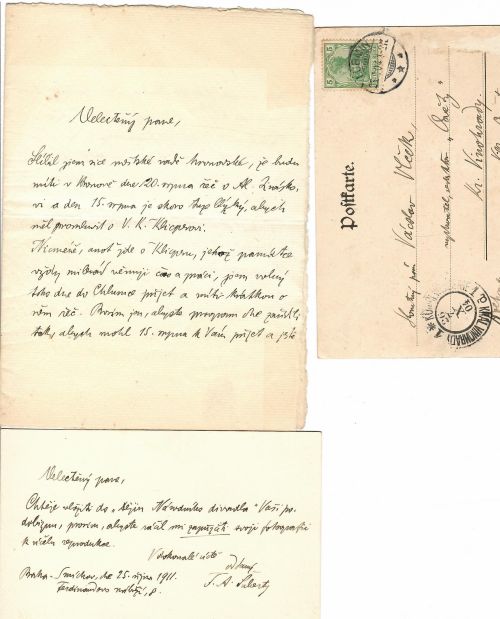 Velectěný pane,
Slíbil jsem sice městské radě hronovské, že budu
míti v Hronově dne 20. srpna řeč o Al. Jirásko-
vi a den 15. srpna je skoro týž, abych
měl promluviti o V. K. Klicperovi.
Nicméně, anoť jde o Klicperu, jehož památce
vždy milerád věnuji čas a práci, jsem volný
toho dne do Chlumce přijet a míti krátkou o
něm řeč. Prosím jen, abyste program dne zařídili
tak, abych mohl 15. srpna k Vám přijet a ještě
Postkarte.
5
Václav Vlček,
"Osvěty"
Kr. Vinohrady
Velectěný pane,
Chtěje vložiti do "Dějin Národního divadla" Vaši po-
dobiznu, prosím, abyste ráčil mi zapůjčiti svoji fotografii
k účelu reprodukce.
V dokonalé úctě
oddaný
F. A. Šubert
Praha-Smíchov, dne 25. října 1911.
Ferdinandovo nábřeží, 8.